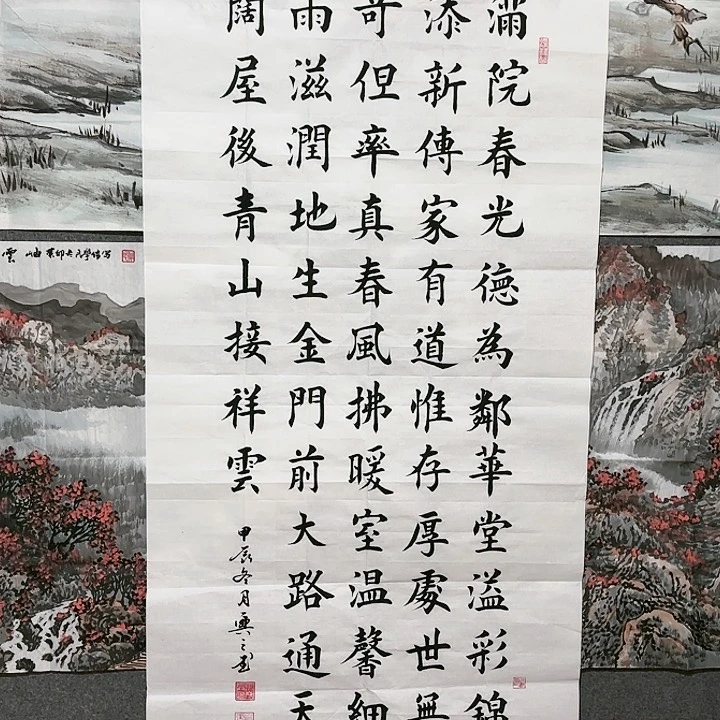 滿院春光德為鄰華堂溢彩錦
添新傳家有道惟存厚處世無
奇但率真春風拂暖室温馨細
雨滋潤地生金門前大路通天
闊屋後青山接祥雲
甲辰冬月